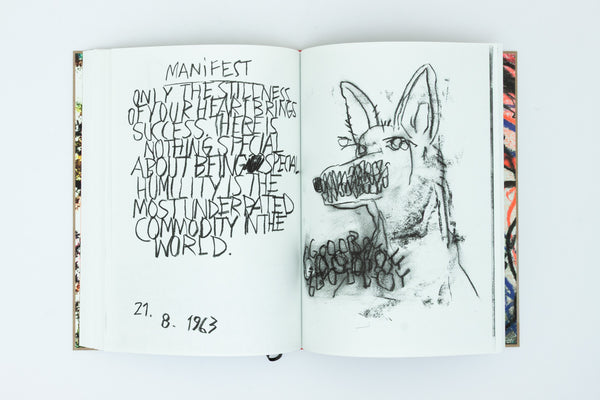 MANiFEST
ONLY THE STILLNESS
OF YOUR HEART BRINGS
SUCCESS. THERE IS
NOTHING SPECIAL
ABOUT BEING SPECIAL.
HUMILITY IS THE
MOST UNDERRATED
COMMODITY IN THE
WORLD.
21. 8. 1963